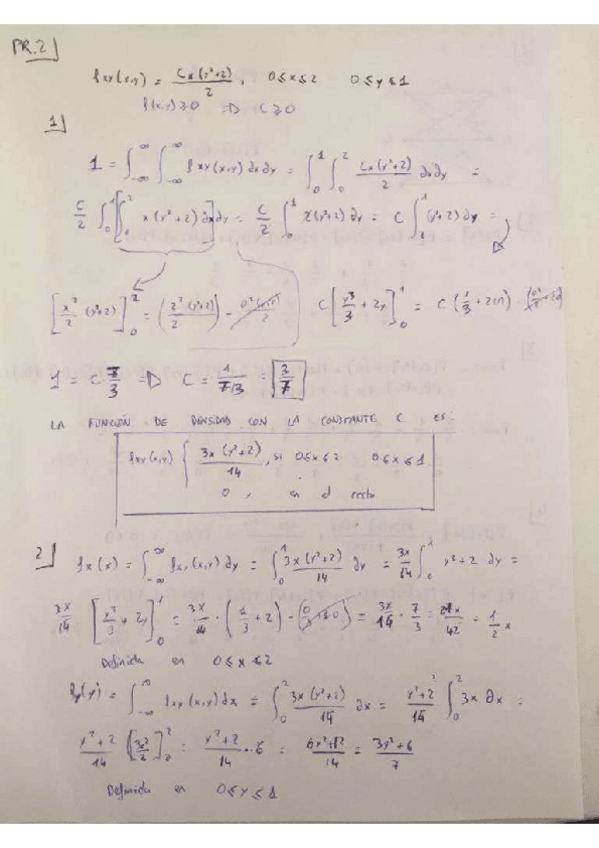 PR.2]
fxy(x,y) = Cx(y²+2)/2, 0≤x≤2 0≤y≤1
f(x,y)≥0 ⇒ C≥0
1]
1 = ∫_{-∞}^{∞} ∫_{-∞}^{∞} fxy(x,y) ∂x∂y = ∫_0^1 ∫_0^2 Cx(y²+2)/2 ∂x∂y =
C/2 ∫_0^1 [∫_0^2 x(y²+2)∂x]∂y = C/2 ∫_0^1 2(y²+2)∂y = C ∫ (y²+2)∂y =
[x²/2 (y²+2)]_0^2 = (2²(y²+2)/2) - C[y³/3 + 2y]_0^1 = C(1/3 + 2(1)) -
1 = C 7/3 ⇒ C = 1/(7/3) = 3/7
LA FUNCIÓN DE DENSIDAD CON LA CONSTANTE C ES:
fxy(x,y) { 3x(y²+2)/14, si 0≤x≤2 0≤x≤1
0, en el resto
2] fx(x) = ∫_{-∞}^{∞} fxy(x,y)∂y = ∫_0^1 3x(y²+2)/14 ∂y = 3x/14 ∫_0^1 y²+2 ∂y =
3x/14 [y³/3 + 2y]_0^1 = 3x/14 · (1/3 + 2) - (0/3+2·0) = 3x/14 · 7/3 = 21x/42 = 1/2 x
Definida en 0≤x≤2
fy(y) = ∫_{-∞}^{∞} fxy(x,y)∂x = ∫_0^2 3x(y²+2)/14 ∂x = y²+2/14 ∫_0^2 3x ∂x =
y²+2/14 [3x²/2]_0^2 = y²+2/14 · 6 = 6y²+12/14 = 3y²+6/7
Definida en 0≤y≤1